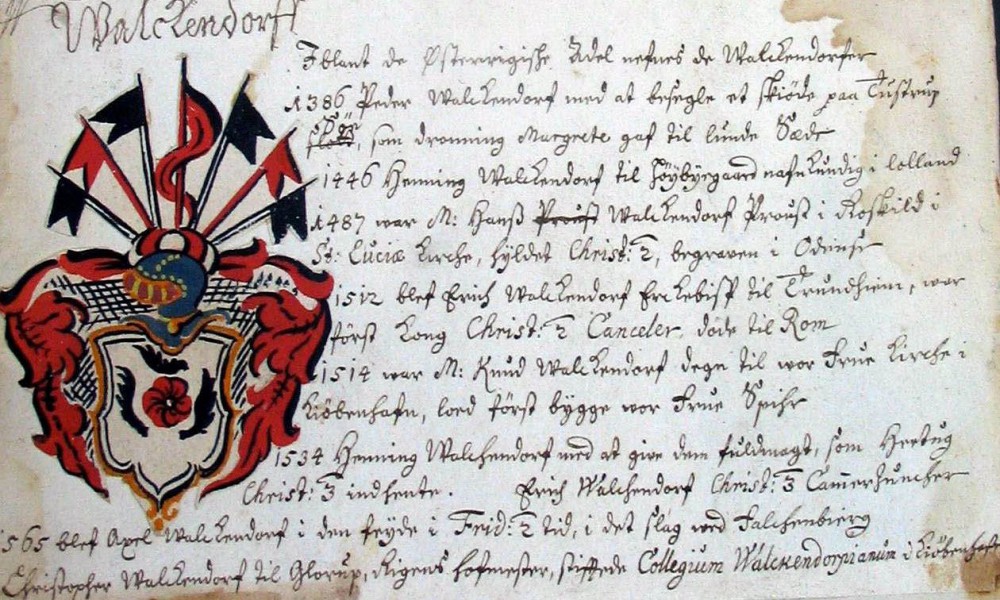 Walckendorff
Iblant de Østerrigiske Adel nefnes de Walckendorfer
1386 Peder Walckendorf med at besegle et skiøde paa Tustrup
som dronning Margrete gaf til lunde Sæde
1446 Henning Walckendorf til Høybyegaard nafnkundig i lolland
1487 war M: Hans Proust Walckendorf Proust i Roskild i
St: Luciæ Kirche, hyldet Christ: 2, begraven i Odense
1512 blef Erich Walckendorf Erckebisp til Trundhiem, war
først Kong Christ: 2 Canceler, døde til Rom
1514 war M: Knud Walckendorf degn til wor Frue Kirche i
Kiøbenhafn, loed først bygge wor Frue Spihr
1534 Henning Walchendorf med at give dem fuldmagt, som Hertug
Christ: 3 indhente. Erich Walchendorf Christ: 3 Camerhuncher
1565 blef Axel Walckendorf i den feyde i Frid: 2 tid, i det slag wed Falchenbierg
Christopher Walckendorf til Glorup, Rigens hofmester, stiftede Collegium Walckendorpianum i Kiøbenhafn